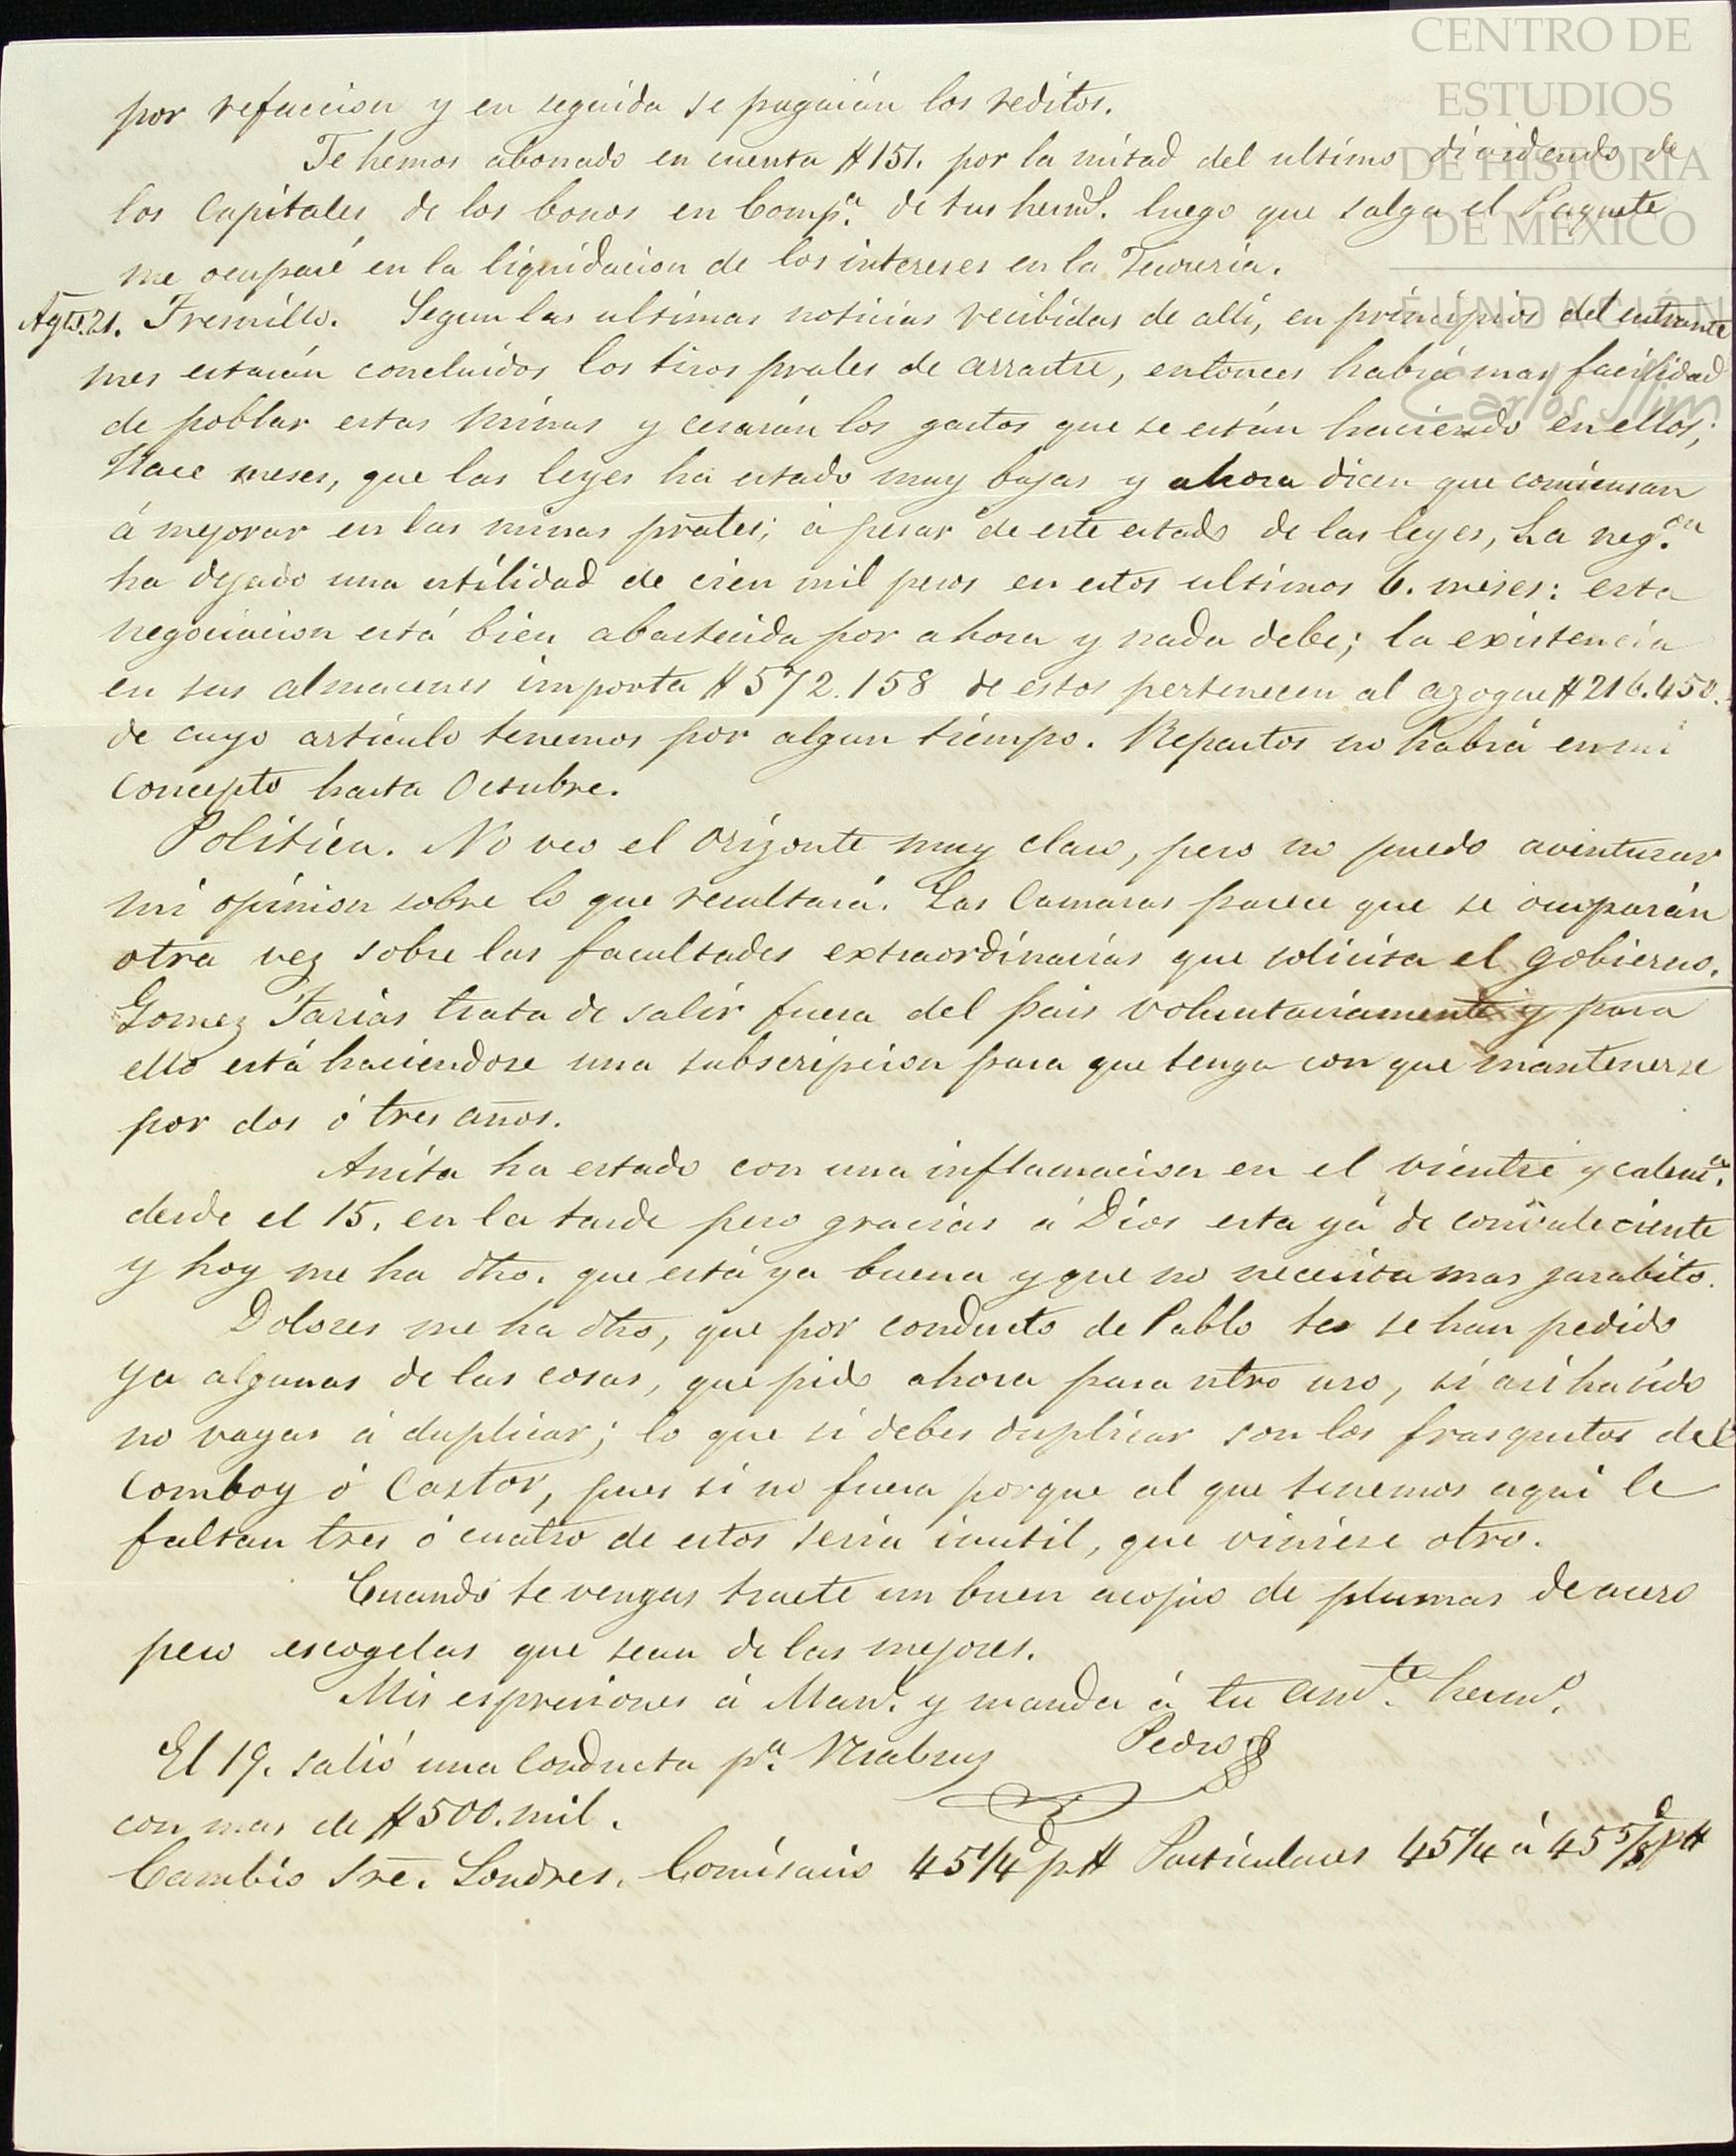 CENTRO DE
ESTUDIOS
DE HISTORIA
DE MÉXICO
FUNDACIÓN
Carlos Slim
por refaccion y en seguida se pagarán los reditos.
Te hemos abonado en cuenta $151. por la mitad del ultimo dividendo de
los Capitales de los bonos en Comp.a de tus herms. luego que salga el Paquete
me ocuparé en la liquidacion de los intereses en la Tesoreria.
Agto. 21. Fresnillo. Segun las ultimas noticias recibidas de alli, en principios del entrante
mes estarán concluidos los tiros prales de arrastre, entonces habrá mas facilidad
de poblar estas minas y cesarán los gastos que se están haciendo en ellos;
Hace meses, que las leyes ha estado muy bajas y ahora dicen que comiensan
á mejorar en las minas prales; á pesar de este estado de las leyes, La neg.on
ha dejado una utilidad de cien mil pesos en estos ultimos 6. meses: esta
negociacion está bien abastecida por ahora y nada debe; la existencia
en sus almacenes importa $572.158 de estos pertenecen al azogue $216.450.
de cuyo articulo tenemos por algun tiempo. Repartos no habrá en mi
concepto hasta Octubre.
Politica. No veo el orizonte muy claro, pero no puedo aventurar
mi opinion sobre lo que resultará. Las Camaras parece que se ocuparán
otra vez sobre las facultades extraordinarias que solicita el gobierno.
Gomez Farias trata de salir fuera del pais voluntariamente y para
ello está haciendose una subscripcion para que tenga con que mantenerse
por dos ó tres años.
Anita ha estado con una inflamacion en el vientre y calent.a
desde el 15. en la tarde pero gracias á Dios esta yá de convaleciente
y hoy me ha dho. que está ya buena y que no necesita mas jarabito.
Dolores me ha dho, que por conducto de Pablo te se han pedido
ya algunas de las cosas, que pido ahora para ntro uso, si asi ha sido
no vayas á duplicar; lo que si debes duplicar son los frasquitos del
Comboy ó Castor, pues si no fuera porque al que tenemos aqui le
faltan tres ó cuatro de estos seria inutil, que viniese otro.
Cuando te vengas traete un buen acopio de plumas de acero
pero escogelas que sean de las mejores.
Mis espresiones á Man.l y manda á tu am.te herm.o
Pedro
El 19. salió una Conducta p.a Veracruz
con mas de $500.mil.
Cambio sre. Londres. Comisario 45 1/4 d p $ Particulares 45 1/4 á 45 5/8 d p $